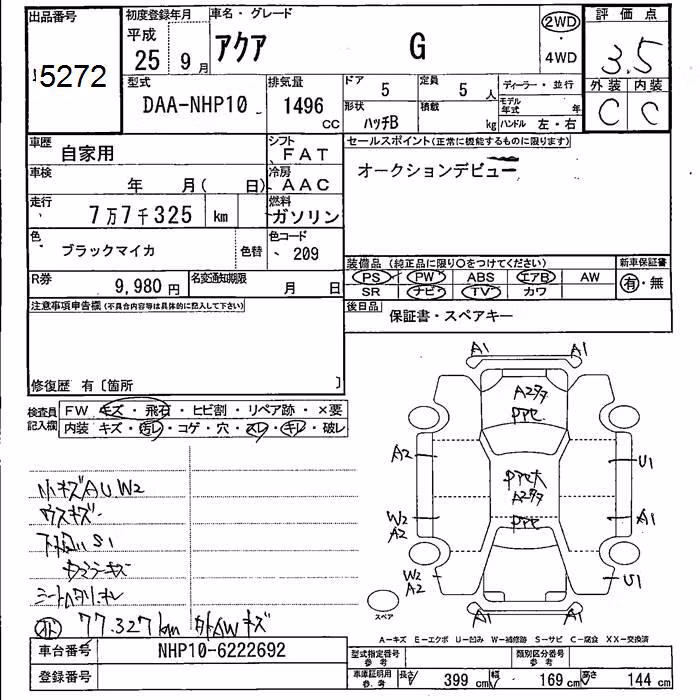 出品番号
5272
初度登録年月
平成
25 9月
車名・グレード
アクア G
2WD
・
4WD
評価点
3.5
外装 内装
C C
型式
DAA-NHP10
排気量
1496
CC
ドア 5
定員 5人
形状 ハッチB
積載 kg
ディーラー・並行
モデル年式 年
ハンドル 左・右
車歴 自家用
シフト FAT
車検 年 月( 日)
冷房 AAC
走行 7万7千325 km
燃料 ガソリン
色 ブラックマイカ 色替
色コード 209
R券 9,980円
名変通知期限 月 日
セールスポイント(正常に機能するものに限ります)
オークションデビュー
装備品(純正品に限り○をつけてください)
PS PW ABS エアB AW
SR ナビ TV カワ
新車保証書
有・無
後日品 保証書・スペアキー
注意事項申告欄(不具合内容等は具体的に記入して下さい)
修復歴 有〔箇所 〕
検査員記入欄
FW キズ・飛石・ヒビ割・リペア跡・×要
内装 キズ・汚レ・コゲ・穴・スレ・キレ・破レ
小キズAUW2
ウスキズ
S1
77.327km
A1 A1
A2
A2
U1
W2
A2
A1
W2
A2
U1
A1 A1
スペア
A-キズ E-エクボ U-凹み W-補修跡 S-サビ C-腐食 XX-交換済
車台番号 NHP10-6222692
登録番号
型式指定番号 参考
類別区分番号 参考
車庫証明用 参考 長さ 399cm 幅 169cm 高さ 144cm